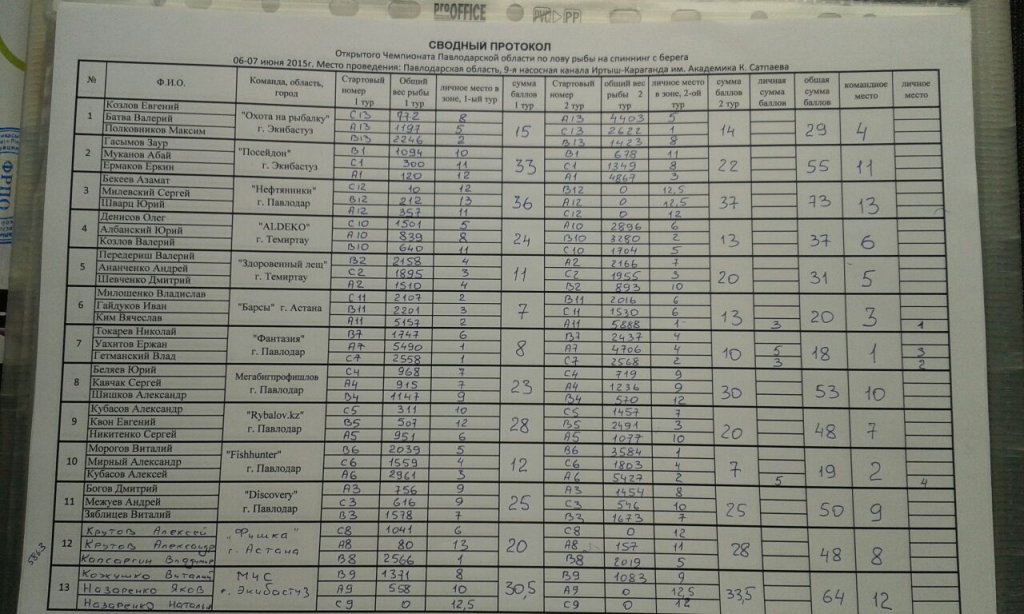 proOFFICE
PVC PP
СВОДНЫЙ ПРОТОКОЛ
Открытого Чемпионата Павлодарской области по лову рыбы на спиннинг с берега
06-07 июня 2015г. Место проведения: Павлодарская область, 9-я насосная канала Иртыш-Караганда им. Академика К. Сатпаева
№ Ф.И.О. Команда, область, город Стартовый номер 1 тур Общий вес рыбы 1 тур личное место в зоне, 1-ый тур сумма баллов 1 тур Стартовый номер 2 тур общий вес рыбы 2 тур личное место в зоне, 2-ой тур сумма баллов 2 тур личная сумма баллов общая сумма баллов командное место личное место
1 "Охота на рыбалку" г. Экибастуз 15 14 29 4
Козлов Евгений С13 772 8 А13 4403 5
Батва Валерий А13 1197 5 С13 2622 1
Полковников Максим В13 2246 2 В13 1423 8
2 "Посейдон" г. Экибастуз 33 22 55 11
Гасымов Заур В1 1094 10 В1 678 11
Муканов Абай С1 300 11 С1 1349 8
Ермаков Еркин А1 120 12 А1 4867 3
3 "Нефтянники" г. Павлодар 36 37 73 13
Бекеев Азамат С12 10 12 В12 0 12,5
Милевский Сергей В12 212 13 А12 0 12,5
Шварц Юрий А12 357 11 С12 0 12
4 "ALDEKO" г. Темиртау 24 13 37 6
Денисов Олег С10 1501 5 А10 2896 6
Албанский Юрий А10 839 8 В10 3280 2
Козлов Валерий В10 640 11 С10 1704 5
5 "Здоровенный лещ" г. Темиртау 11 20 31 5
Передериш Валерий В2 2158 4 А2 2166 7
Ананченко Андрей С2 1895 3 С2 1955 3
Шевченко Дмитрий А2 1510 4 В2 893 10
6 "Барсы" г. Астана 7 13 20 3
Милошенко Владислав С11 2107 2 В11 2016 6
Гайдуков Иван В11 2201 3 С11 1530 6
Ким Вячеслав А11 5157 2 А11 5888 1 3 1
7 "Фантазия" г. Павлодар 8 10 18 1
Токарев Николай В7 1747 6 В7 2437 4
Уахитов Ержан А7 5490 1 А7 4706 4 5 3
Гетманский Влад С7 2558 1 С7 2568 2 3 2
8 Мегабигпрофишлов г. Павлодар 23 30 53 10
Беляев Юрий С4 968 7 С4 719 9
Кавчак Сергей А4 915 7 А4 1236 9
Шишков Александр В4 1147 9 В4 570 12
9 "Rybalov.kz" г. Павлодар 28 20 48 7
Кубасов Александр С5 311 10 С5 1457 7
Квон Евгений В5 507 12 В5 2491 3
Никитенко Сергей А5 951 6 А5 1077 10
10 "Fishhunter" г. Павлодар 12 7 19 2
Морогов Виталий В6 2039 5 В6 3584 1
Мирный Александр С6 1559 4 С6 1803 4
Кубасов Алексей А6 2961 3 А6 5427 2 5 4
11 "Discovery" г. Павлодар 25 25 50 9
Богов Дмитрий А3 756 9 А3 1454 8
Межуев Андрей С3 616 9 С3 546 10
Зяблицев Виталий В3 1578 7 В3 1673 7
12 "Фишка" г. Астана 20 28 48 8
Крутов Алексей С8 1041 6 С8 0 12
Крутов Александр А8 80 13 А8 157 11
Капсаргин Владимир В8 2566 1 В8 2019 5
13 МЧС г. Экибастуз 30,5 33,5 64 12
Кожушко Виталий В9 1371 8 В9 1083 9
Назаренко Яков А9 558 10 А9 0 12,5
Назаренко Наталья С9 0 12,5 С9 0 12